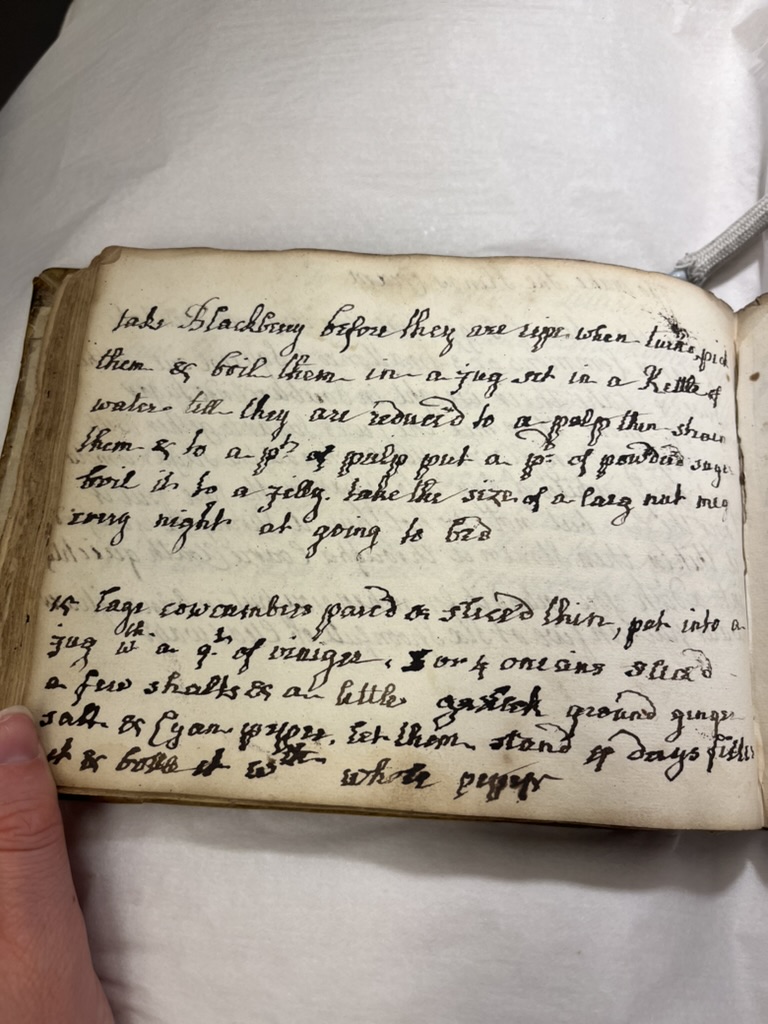 take Blackberry before they are ripe when turn'd pick
them & boil them in a jug set in a Kettle of
water till they are reduced to a palp then strain
them & to a pt of pulp put a pd of powderd suga
boil it to a jelly. take the size of a larg nut meg
every night at going to bed
15 large cowcumbers pared & sliced thin, put into a
jug wth a qt of viniger, 3 or 4 onions sliced
a few shalts & a little garlick ground ginger
salt & Cyan peper. let them stand days filter
it & boile it wth whole peper